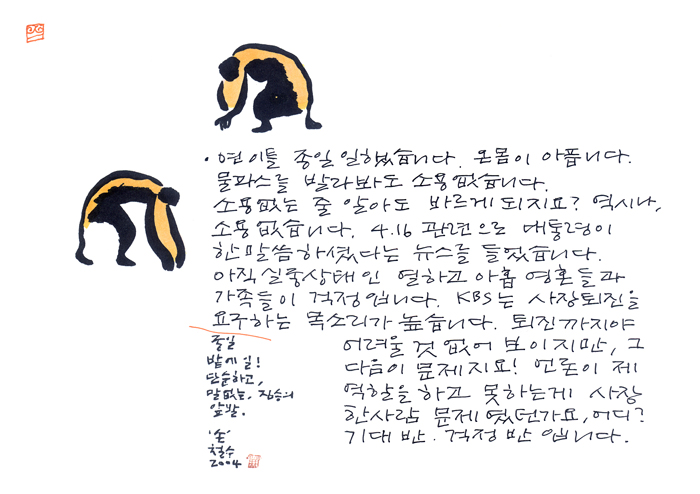 · 연 이틀 종일 일했습니다. 온몸이 아픕니다.
물파스를 발라봐도 소용 없습니다.
소용없는 줄 알아도 바르게 되지요? 역시나,
소용 없습니다. 4.16 관련으로 대통령이
한 말씀 하셨다는 뉴스를 들었습니다.
아직 실종상태인 열하고 아홉 영혼들과
가족들이 걱정입니다. KBS는 사장퇴진을
요구하는 목소리가 높습니다. 퇴진까지야
어려울 것 없어 보이지만, 그
다음이 문제지요! 언론이 제
역할을 하고 못하는게 사장
한사람 문제였던가요, 어디?
기대 반. 걱정 반 입니다.
종일
밭에 일!
단순하고,
말없는, 짐승의
앞발.
'손'
철수
2004